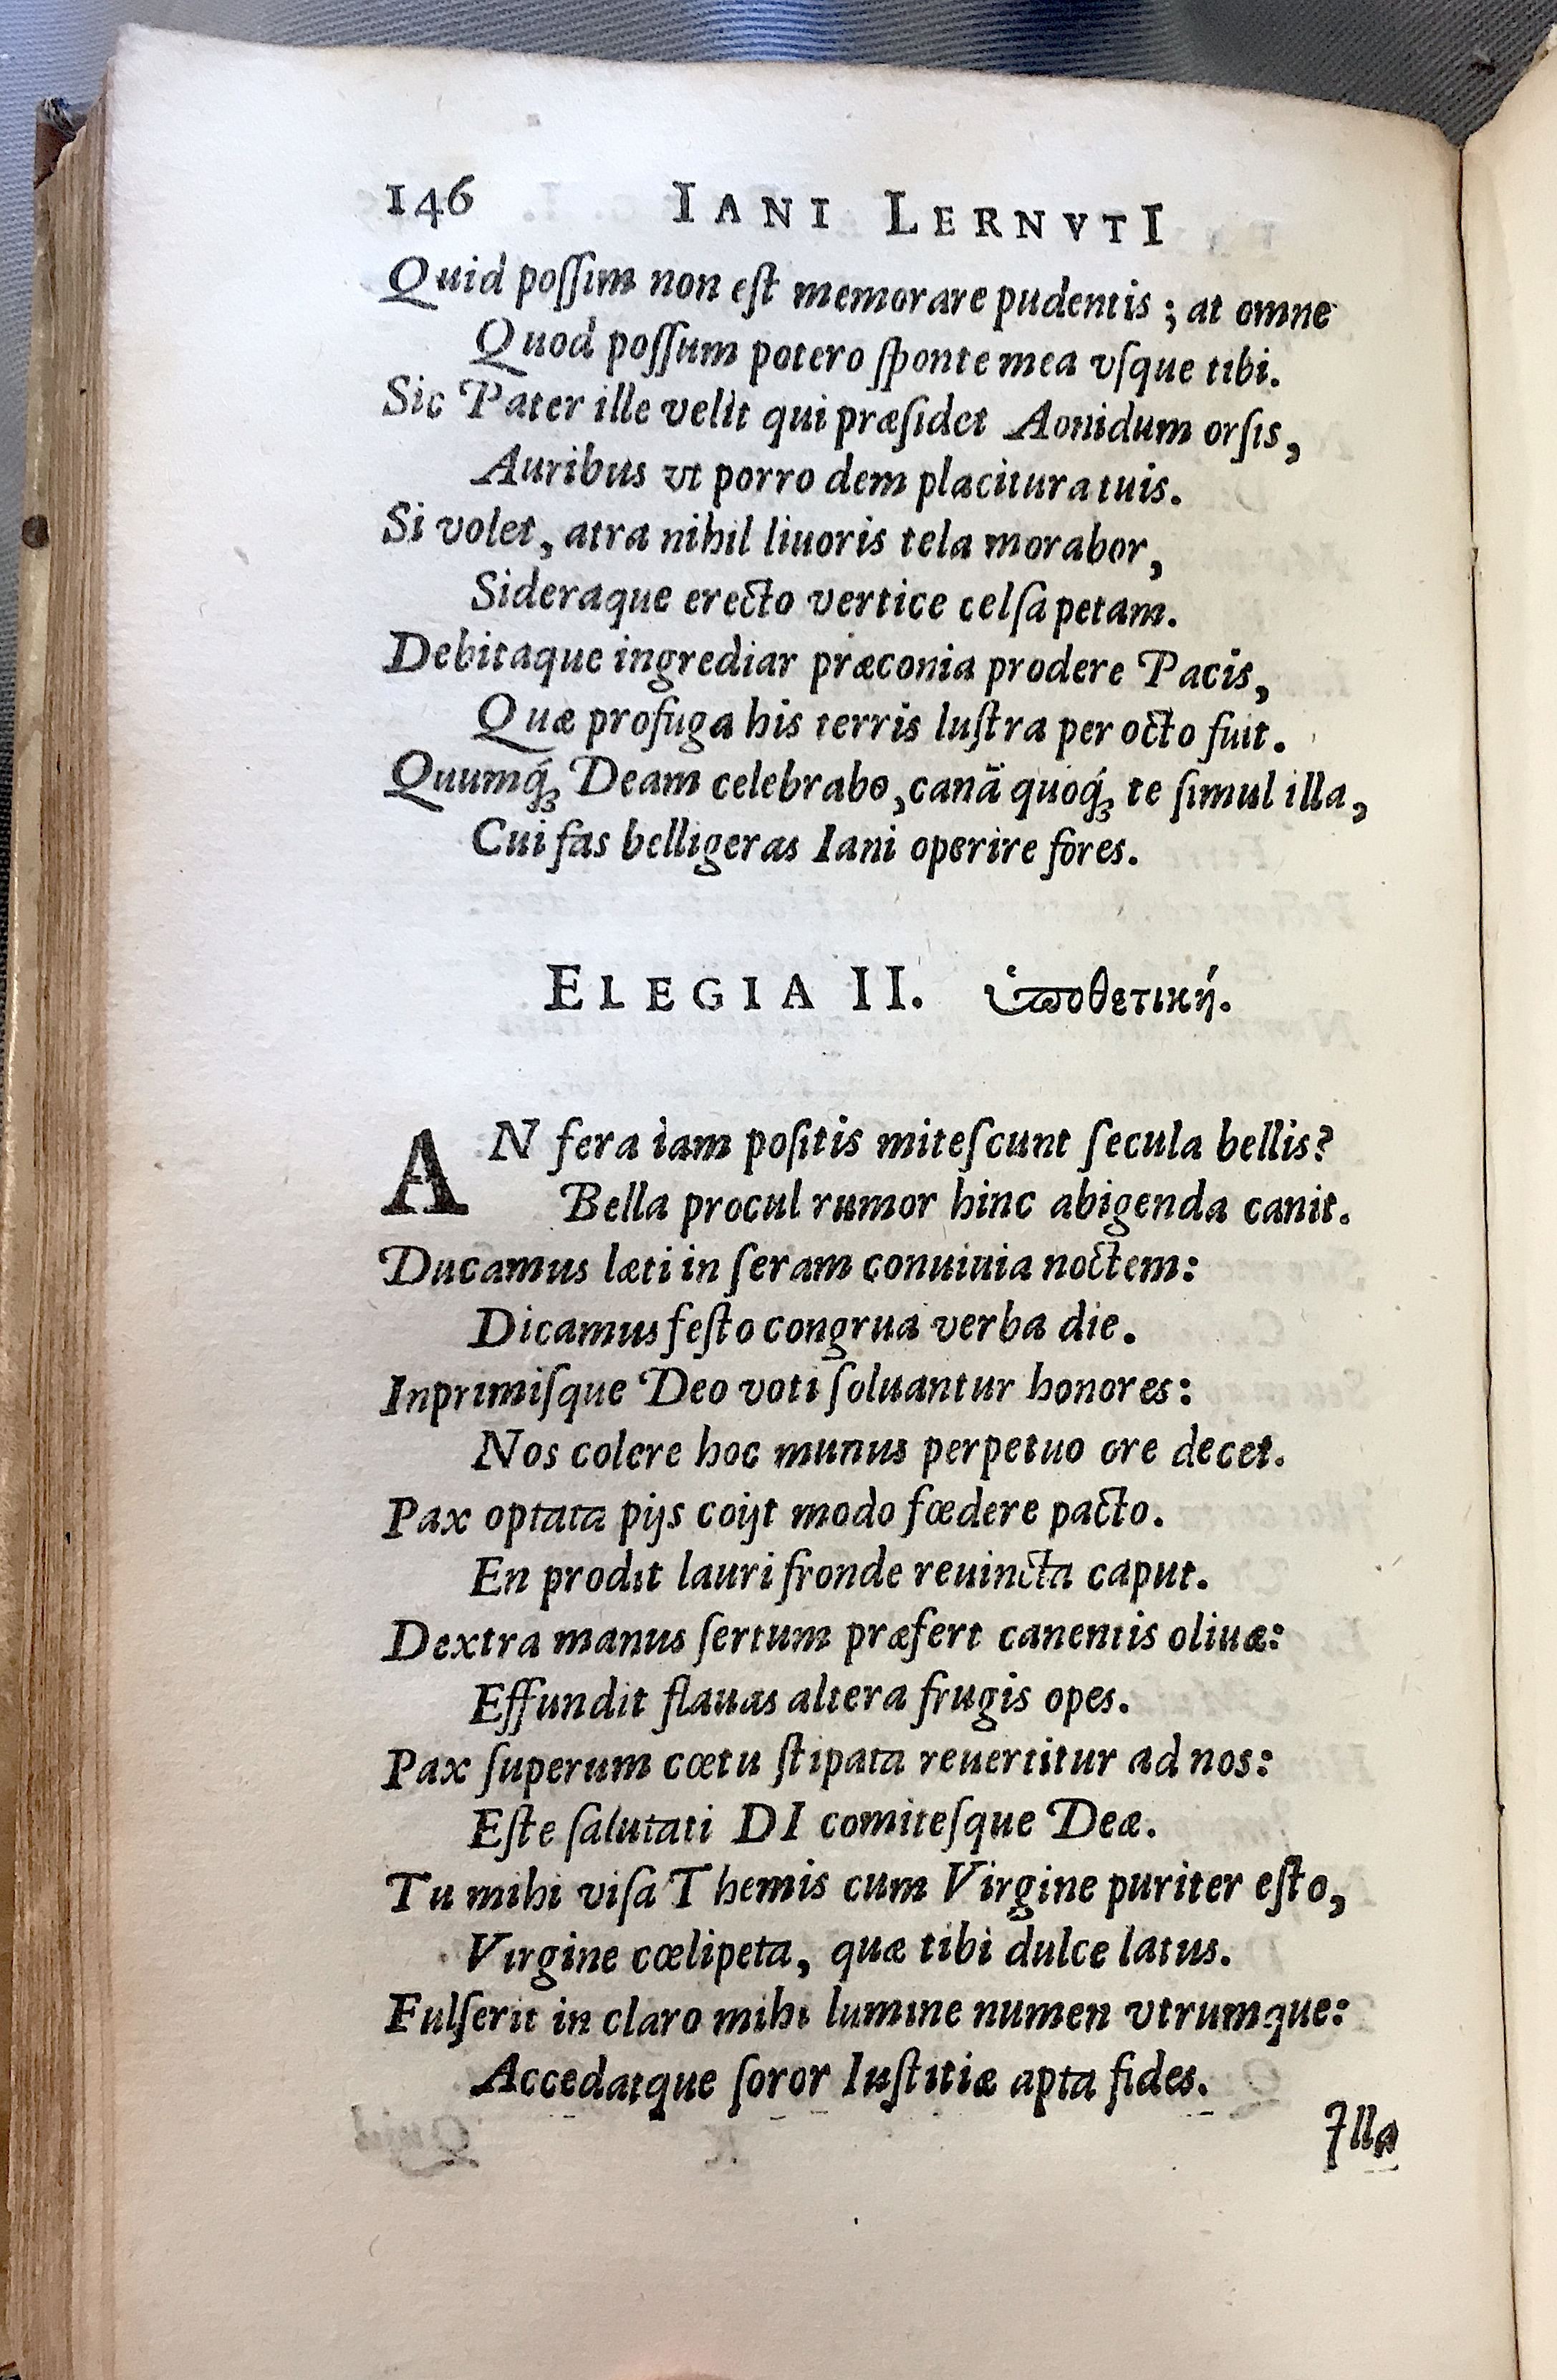 146 IANI LERNVTI
Quid poſſim non eſt memorare pudentis; at omne
Quod poſſum potero ſponte mea vſque tibi.
Sic Pater ille velit qui præſidet Aonidum orſis,
Auribus vt porro dem placitura tuis.
Si volet, atra nihil liuoris tela morabor,
Sideraque erecto vertice celſa petam.
Debitaque ingrediar præconia prodere Pacis,
Quæ profuga his terris luſtra per octo fuit.
Quumq́ꝫ Deam celebrabo, canā quoq́ꝫ te ſimul illa,
Cui fas belligeras Iani operire fores.
ELEGIA II. ὑποθετική.
AN fera iam poſitis miteſcunt ſecula bellis?
Bella procul rumor hinc abigenda canit.
Ducamus læti in ſeram conuiuia noctem:
Dicamus feſto congrua verba die.
Inprimiſque Deo voti ſoluantur honores:
Nos colere hoc munus perpetuo ore decet.
Pax optata pijs coijt modo fœdere pacto.
En prodit lauri fronde reuincta caput.
Dextra manus ſertum præfert canentis oliuæ:
Effundit flauas altera frugis opes.
Pax ſuperum cœtu ſtipata reuertitur ad nos:
Eſte ſalutati DI comiteſque Deæ.
Tu mihi viſa Themis cum Virgine puriter eſto,
Virgine cœlipeta, quæ tibi dulce latus.
Fulſerit in claro mihi lumine numen vtrumque:
Accedatque ſoror Iuſtitiæ apta fides.
Illa